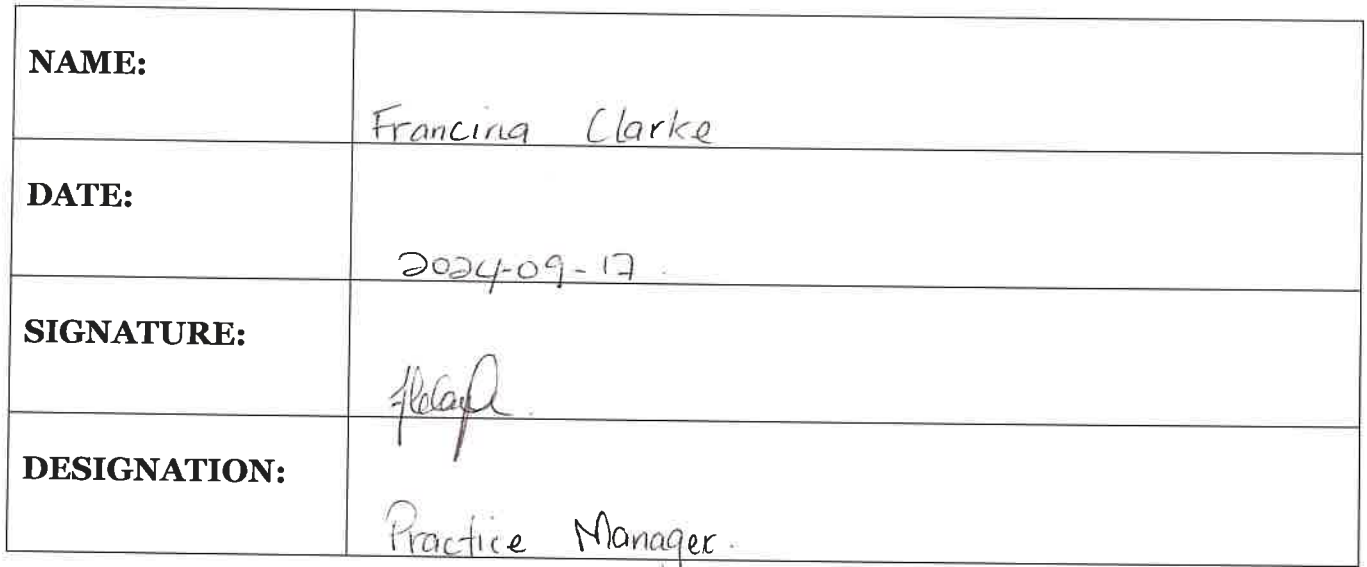 NAME:
Francina Clarke
DATE:
2024-09-17.
SIGNATURE:
DESIGNATION:
Practice Manager.